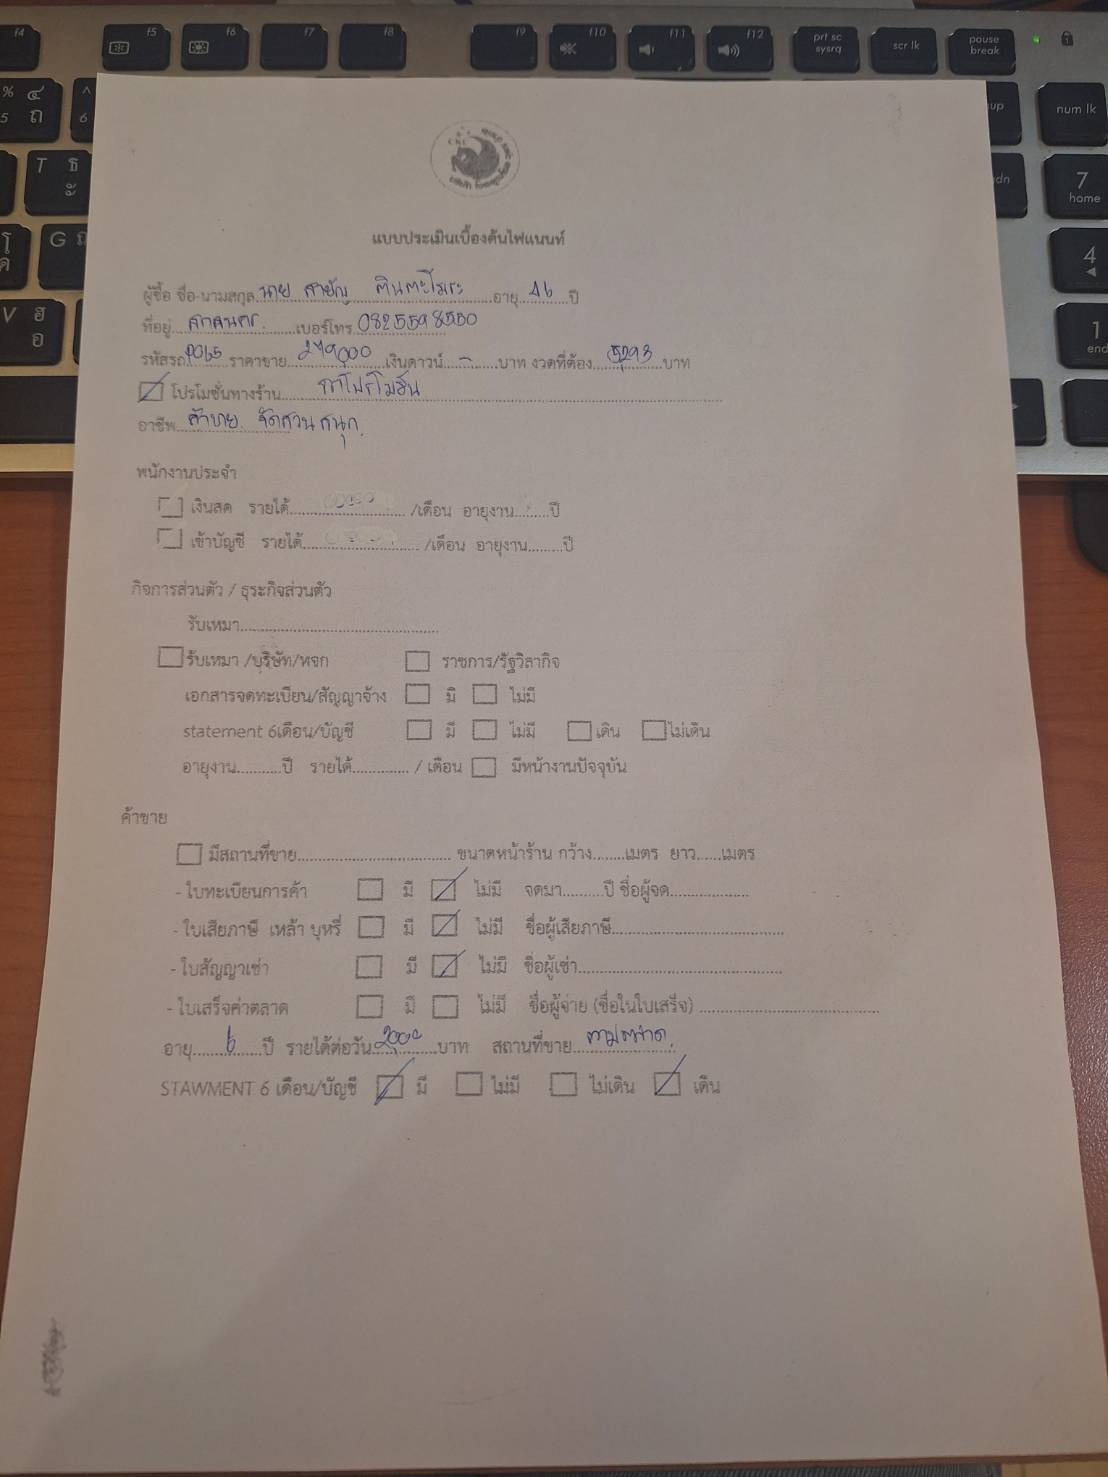 แบบประเมินเบื้องต้นไฟแนนท์
ผู้ซื้อ ชื่อ-นามสกุล นาย สายัญ อายุ 46 ปี
ที่อยู่ เบอร์โทร 0825598550
รหัสรถ ราคาขาย 279000 เงินดาวน์ - บาท งวดที่ต้อง 5293 บาท
โปรโมชั่นทางร้าน
อาชีพ ค้าขาย จัดสวน
พนักงานประจำ
เงินสด รายได้ /เดือน อายุงาน ปี
เข้าบัญชี รายได้ /เดือน อายุงาน ปี
กิจการส่วนตัว / ธุระกิจส่วนตัว
รับเหมา
รับเหมา /บริษัท/หจก ราชการ/รัฐวิสากิจ
เอกสารจดทะเบียน/สัญญาจ้าง มี ไม่มี
statement 6เดือน/บัญชี มี ไม่มี เดิน ไม่เดิน
อายุงาน ปี รายได้ / เดือน มีหน้างานปัจจุบัน
ค้าขาย
มีสถานที่ขาย ขนาดหน้าร้าน กว้าง เมตร ยาว เมตร
- ใบทะเบียนการค้า มี ไม่มี จดมา ปี ชื่อผู้จด
- ใบเสียภาษี เหล้า บุหรี่ มี ไม่มี ชื่อผู้เสียภาษี
- ใบสัญญาเช่า มี ไม่มี ชื่อผู้เช่า
- ใบเสร็จค่าตลาด มี ไม่มี ชื่อผู้จ่าย (ชื่อในใบเสร็จ)
อายุ 6 ปี รายได้ต่อวัน 2000 บาท สถานที่ขาย ตามตลาด
STAWMENT 6 เดือน/บัญชี มี ไม่มี ไม่เดิน เดิน
f4 f5 f6 f7 f8 f9 f10 f11 f12 prt sc sysrq scr lk pause break
num lk
7 home
4
1 end